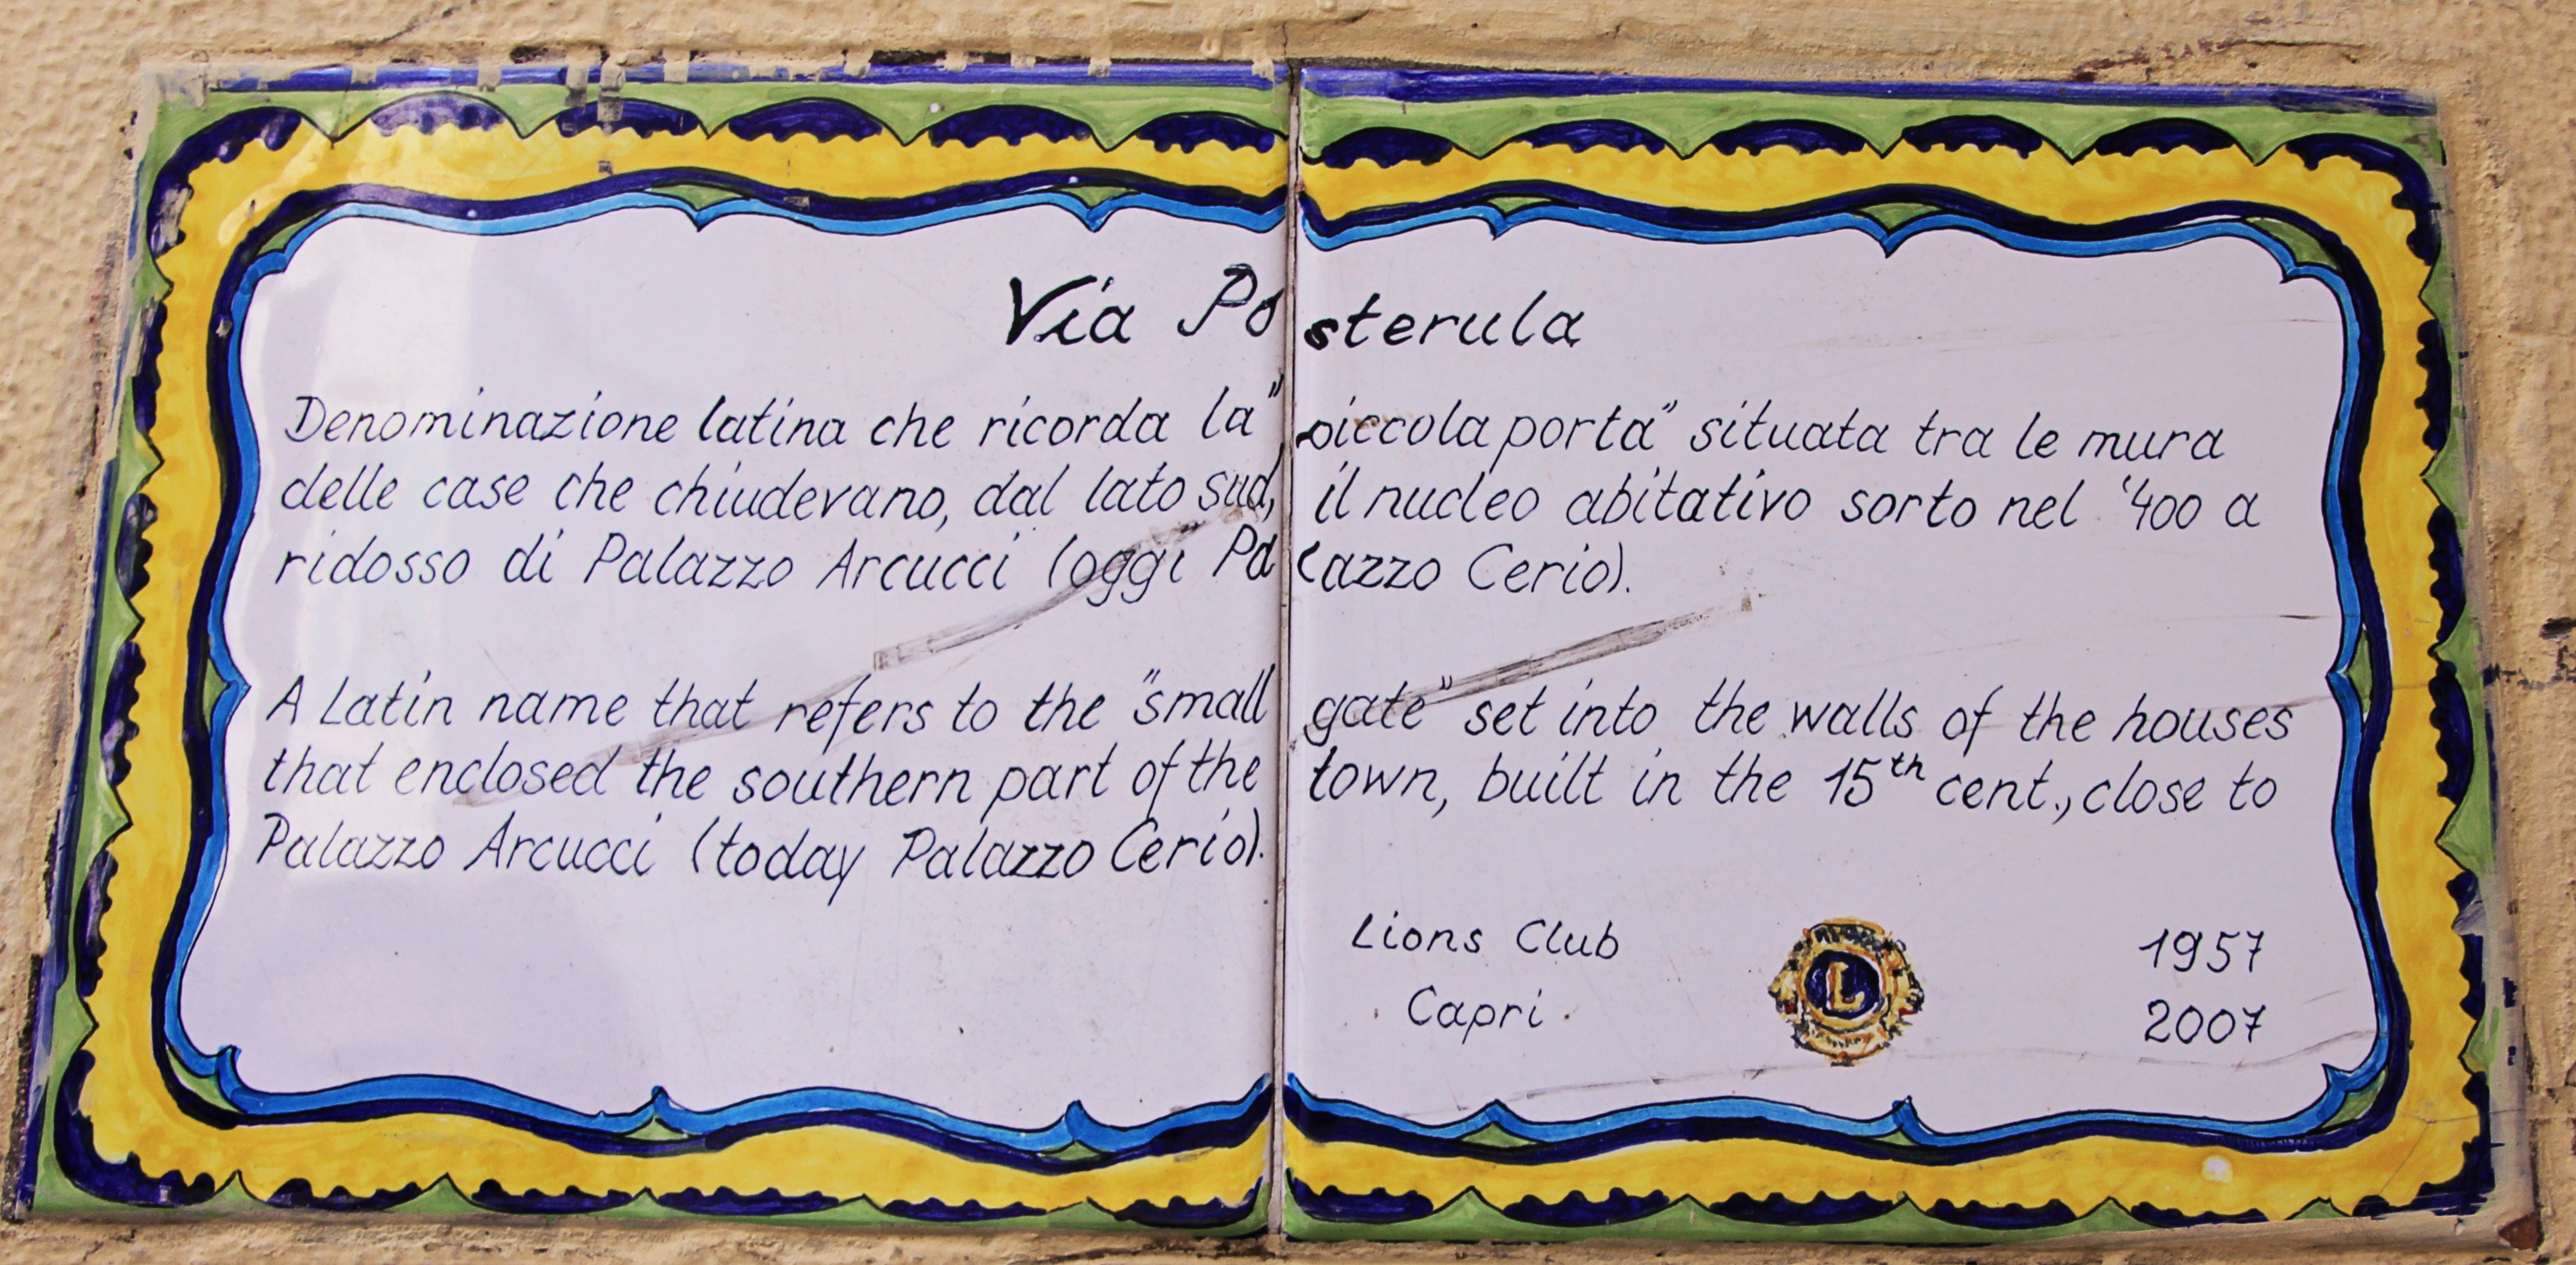 Via Posterula
Denominazione latina che ricorda la "piccola porta" situata tra le mura
delle case che chiudevano, dal lato sud, il nucleo abitativo sorto nel '400 a
ridosso di Palazzo Arcucci (oggi Palazzo Cerio).
A Latin name that refers to the "small gate" set into the walls of the houses
that enclosed the southern part of the town, built in the 15th cent., close to
Palazzo Arcucci (today Palazzo Cerio).
Lions Club
Capri
L
1957
2007